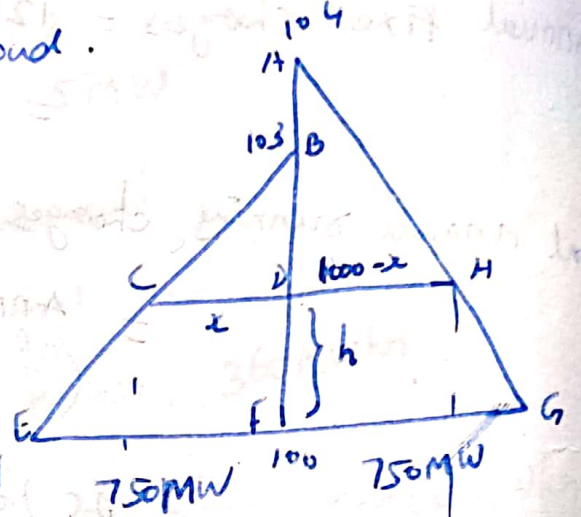 ond.
104
A
103 B
C D 1000-x H
x
} h
E F G
100
750MW 750MW